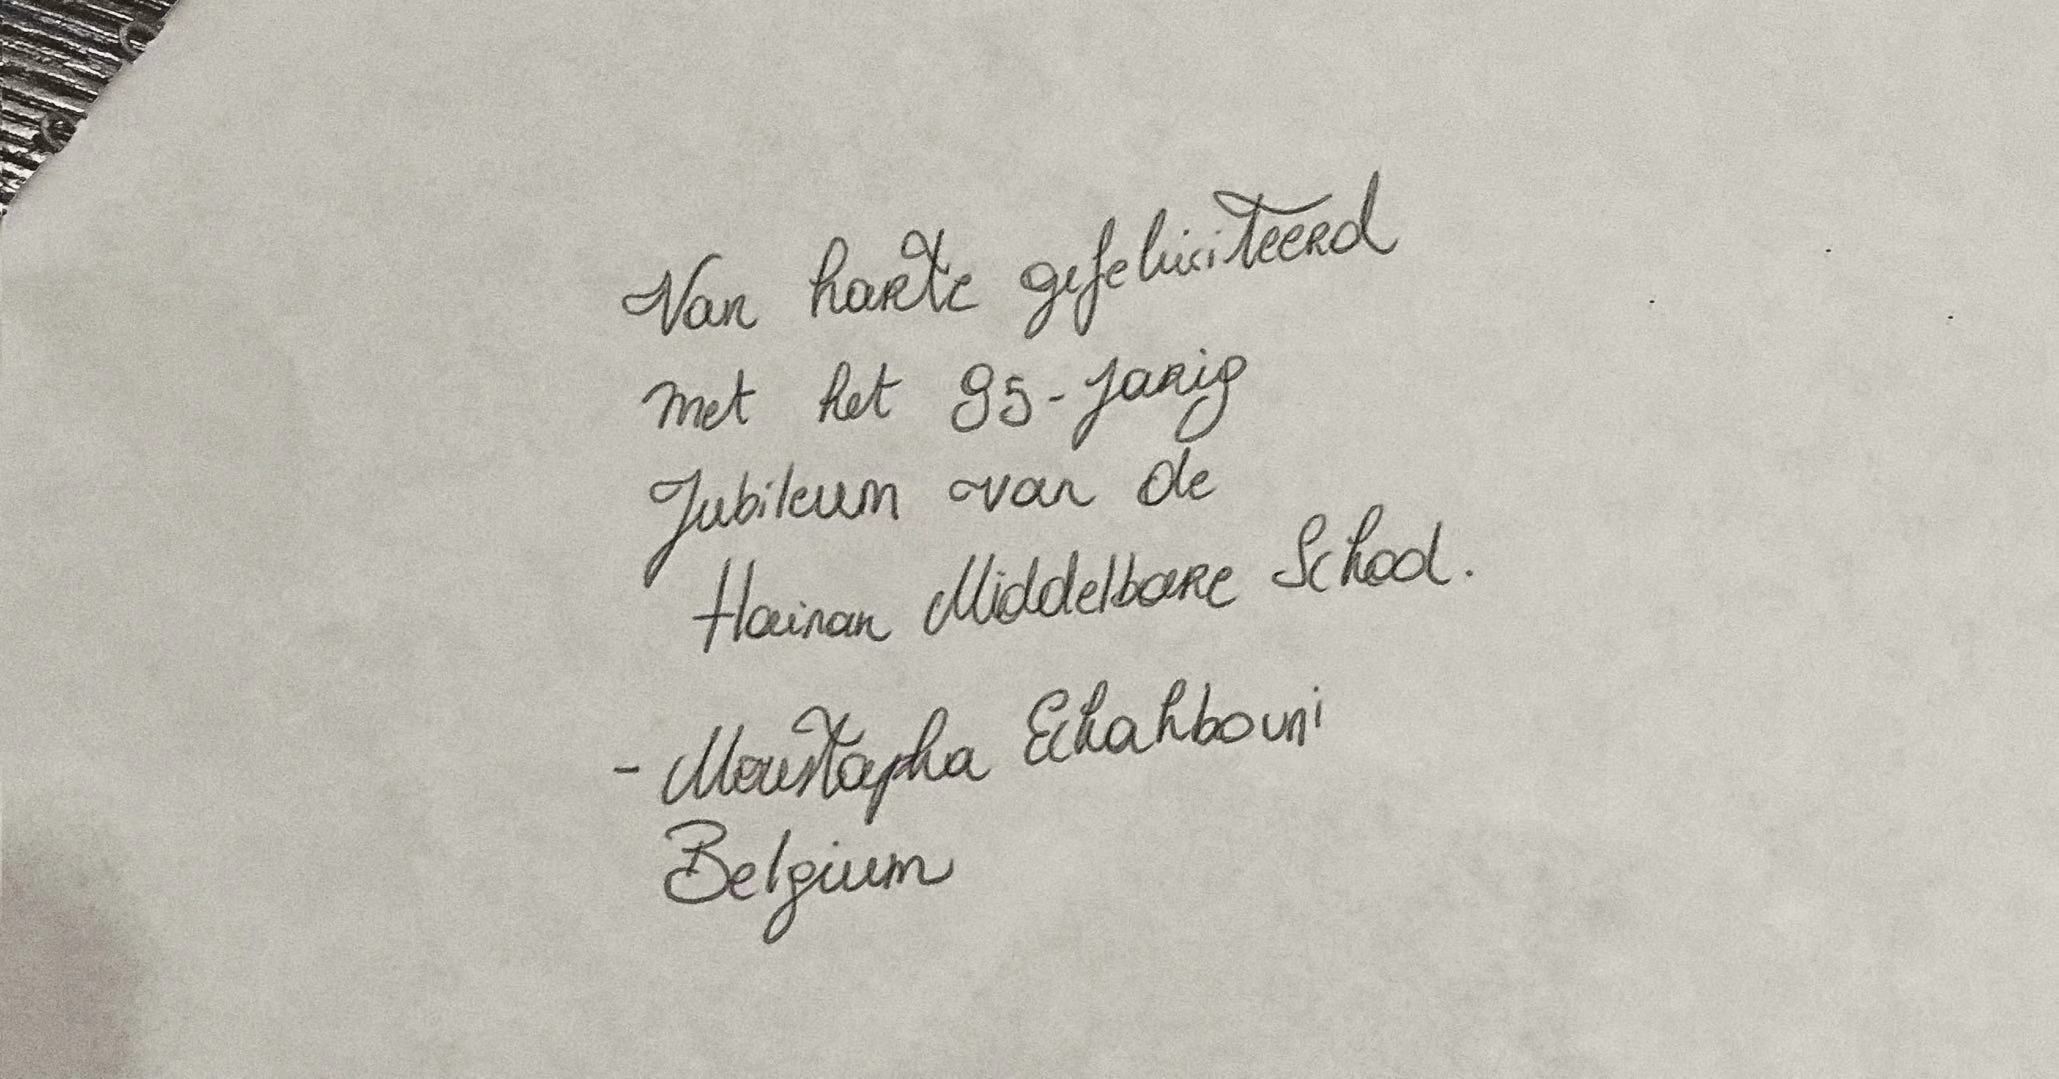 Van harte gefeliciteerd
met het 95-Jarig
Jubileum van de
Hainan Middelbare School.
- Moustapha Echahbouni
Belgium